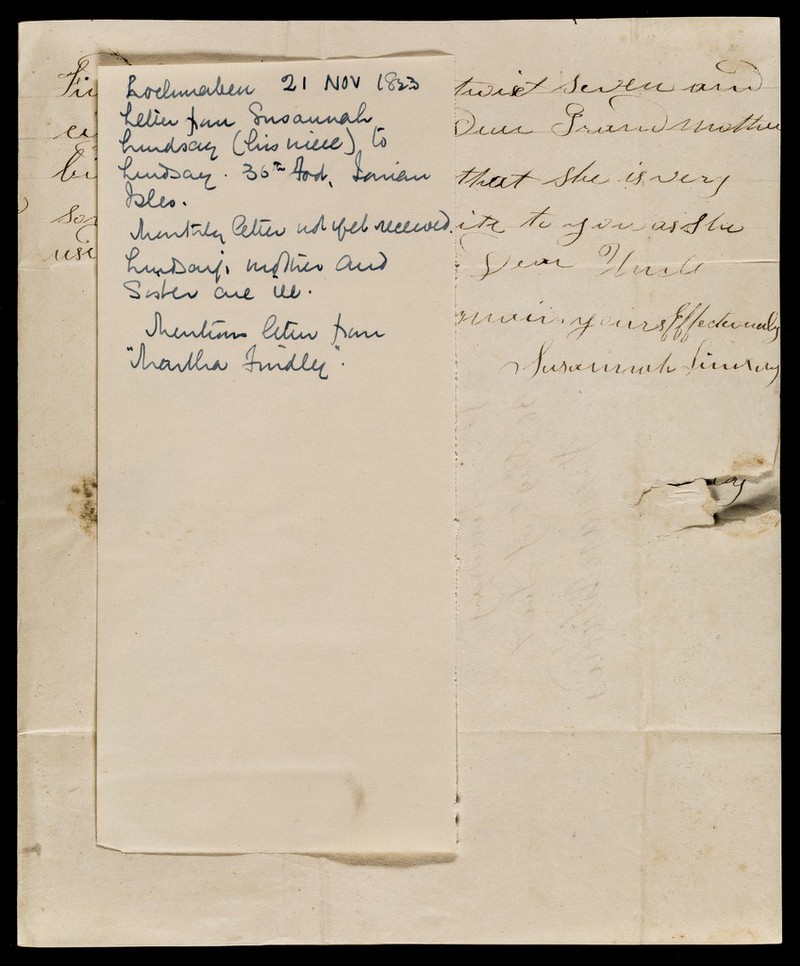 Lochmaben 21 NOV 1823
Letter from Susannah
Lindsay (his niece) to
Lindsay. 36th Foot, Ionian
Isles.
Monthly letter not yet received.
Lindsay's mother and
Sister are ill.
Mentions letter from
"Martha Findley".
twixt seven and
Dear Grand Mother
that she is very
ite to you as she
Dear Uncle
main yours Effectionaly
Susannah Lindsay